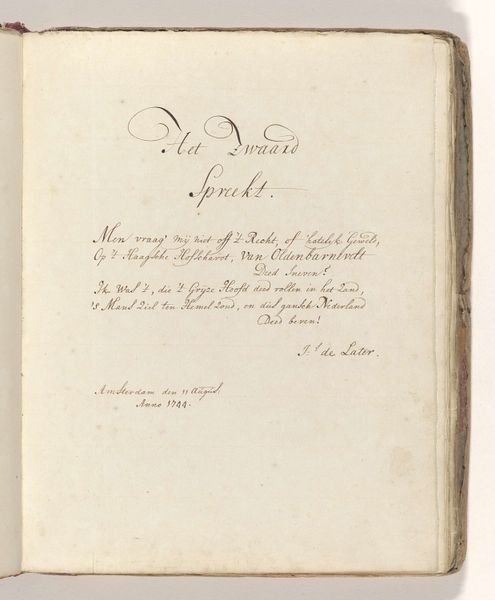 Het Zwaard
Spreekt.
Men vraag' mij niet off 't Recht, of hatelijk Gewelt,
Op 't Haagsche Hofschavot, van Oldenbarnevelt
Deed Sneven?
Ik Was 't, die 't Grijze Hoofd deed rollen in het Zand,
's Mans Ziel ten Hemel Zond, en dus gansch Nederland
Deed beven!
J: de Later.
Amsterdam den 11 August.
Anno 1744.